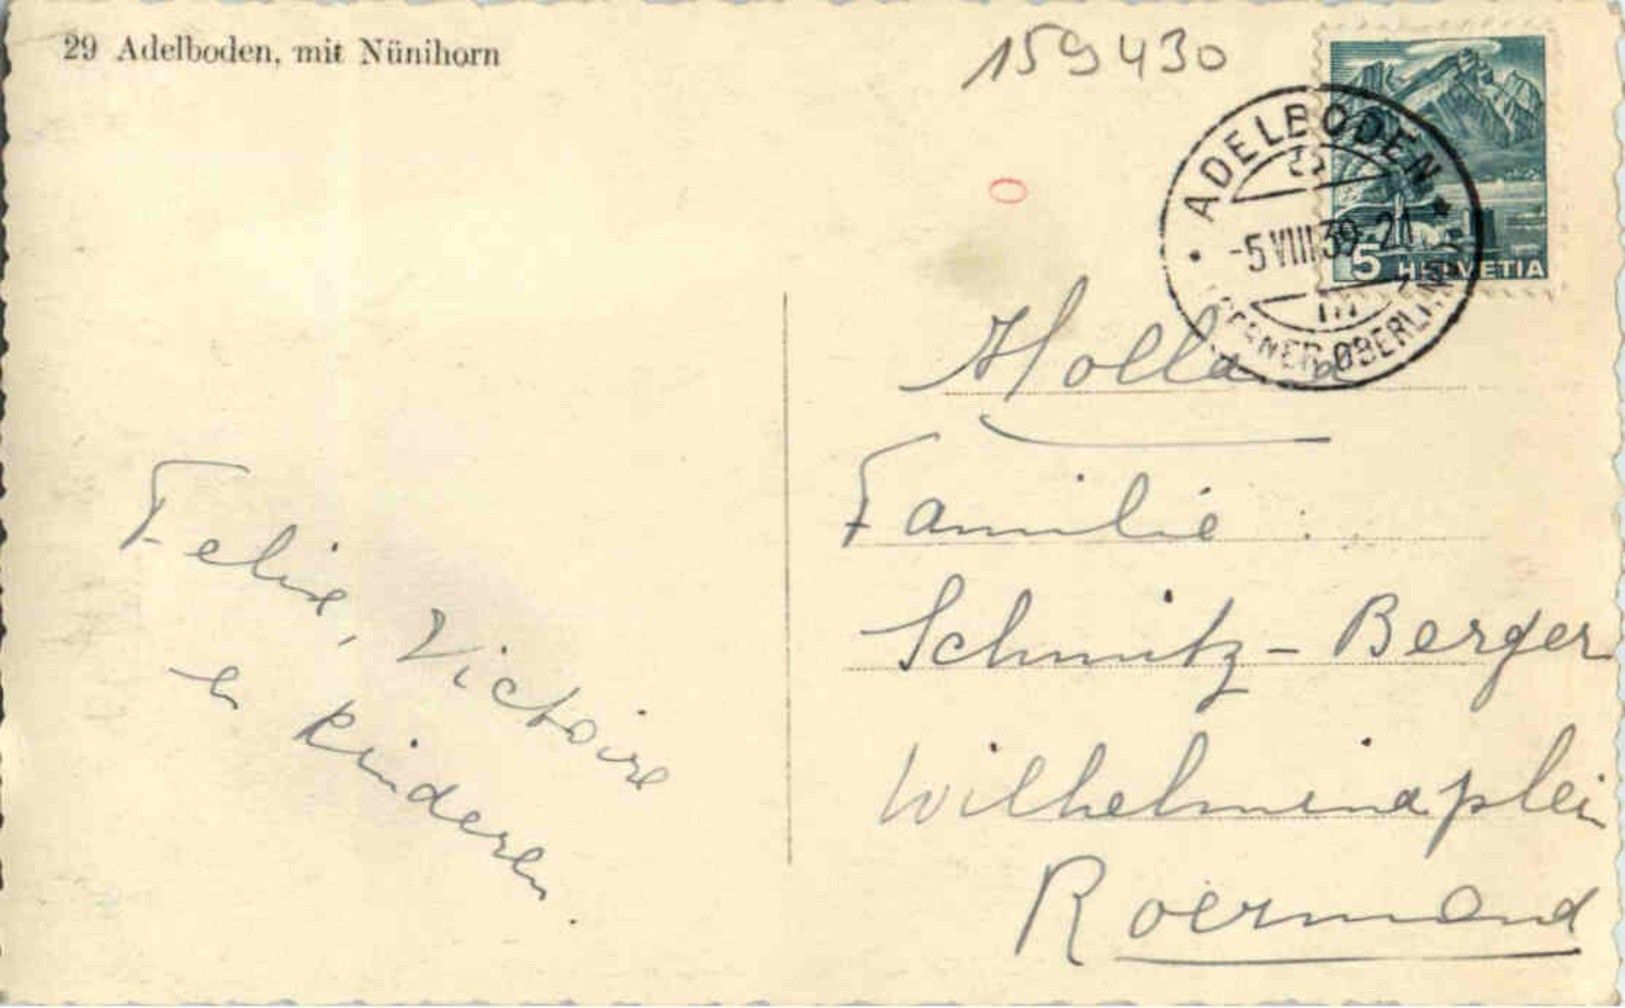 29 Adelboden, mit Nünihorn
159430
ADELBODEN
-5 VIII 39-21
BERNER OBERLAND
5 HELVETIA
Holland
Familie :
Schmitz - Berger
Wilhelminaplein
Roermond
Felix, Victoire
en kinderen.